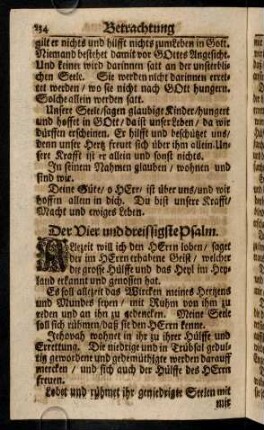 234 Betrachtung
gilt er nichts und hilfft nichts zum Leben in Gott.
Niemand bestehet damit vor GOttes Angesicht.
Und keiner wird darinnen satt an der unsterbli-
chen Seele. Sie werden nicht darinnen erret-
tet werden / wo sie nicht nach GOtt hungern.
Solche allein werden satt.
Unsere Seele / sagen glaubige Kinder / hungert
und hoffet in GOtt / da ist unser Leben / da wir
dürffen erscheinen. Er hilfft und beschützet uns /
denn unser Hertz freuet sich über ihm allein. Un-
sere Krafft ist er allein und sonst nichts.
In seinem Nahmen glauben / wohnen und
sind wir.
Deine Güte / o HErr / ist über uns / und wir
hoffen allein in dich. Du bist unsere Krafft /
Macht und ewiges Leben.
Der Vier und dreissigste Psalm.
ALlezeit will ich den HErrn loben / saget
der im HErrn erhabene Geist / welcher
die grosse Hülffe und das Heyl im Hey-
land erkannt und genossen hat.
Es soll allezeit das Wircken meines Hertzens
und Mundes seyn / mit Ruhm von ihm zu
reden und an ihn zu gedencken. Meine Seele
soll sich rühmen / daß sie den HErrn kenne.
Jehovah wohnet in ihr zu ihrer Hülffe und
Errettung. Die niedrige und in Trübsal gedul-
tig gewordene und gedemüthigte werden darauff
mercken / und sich auch der Hülffe des HErrn
freuen.
Lobet und rühmet ihr geniedrigte Seelen mit
mir